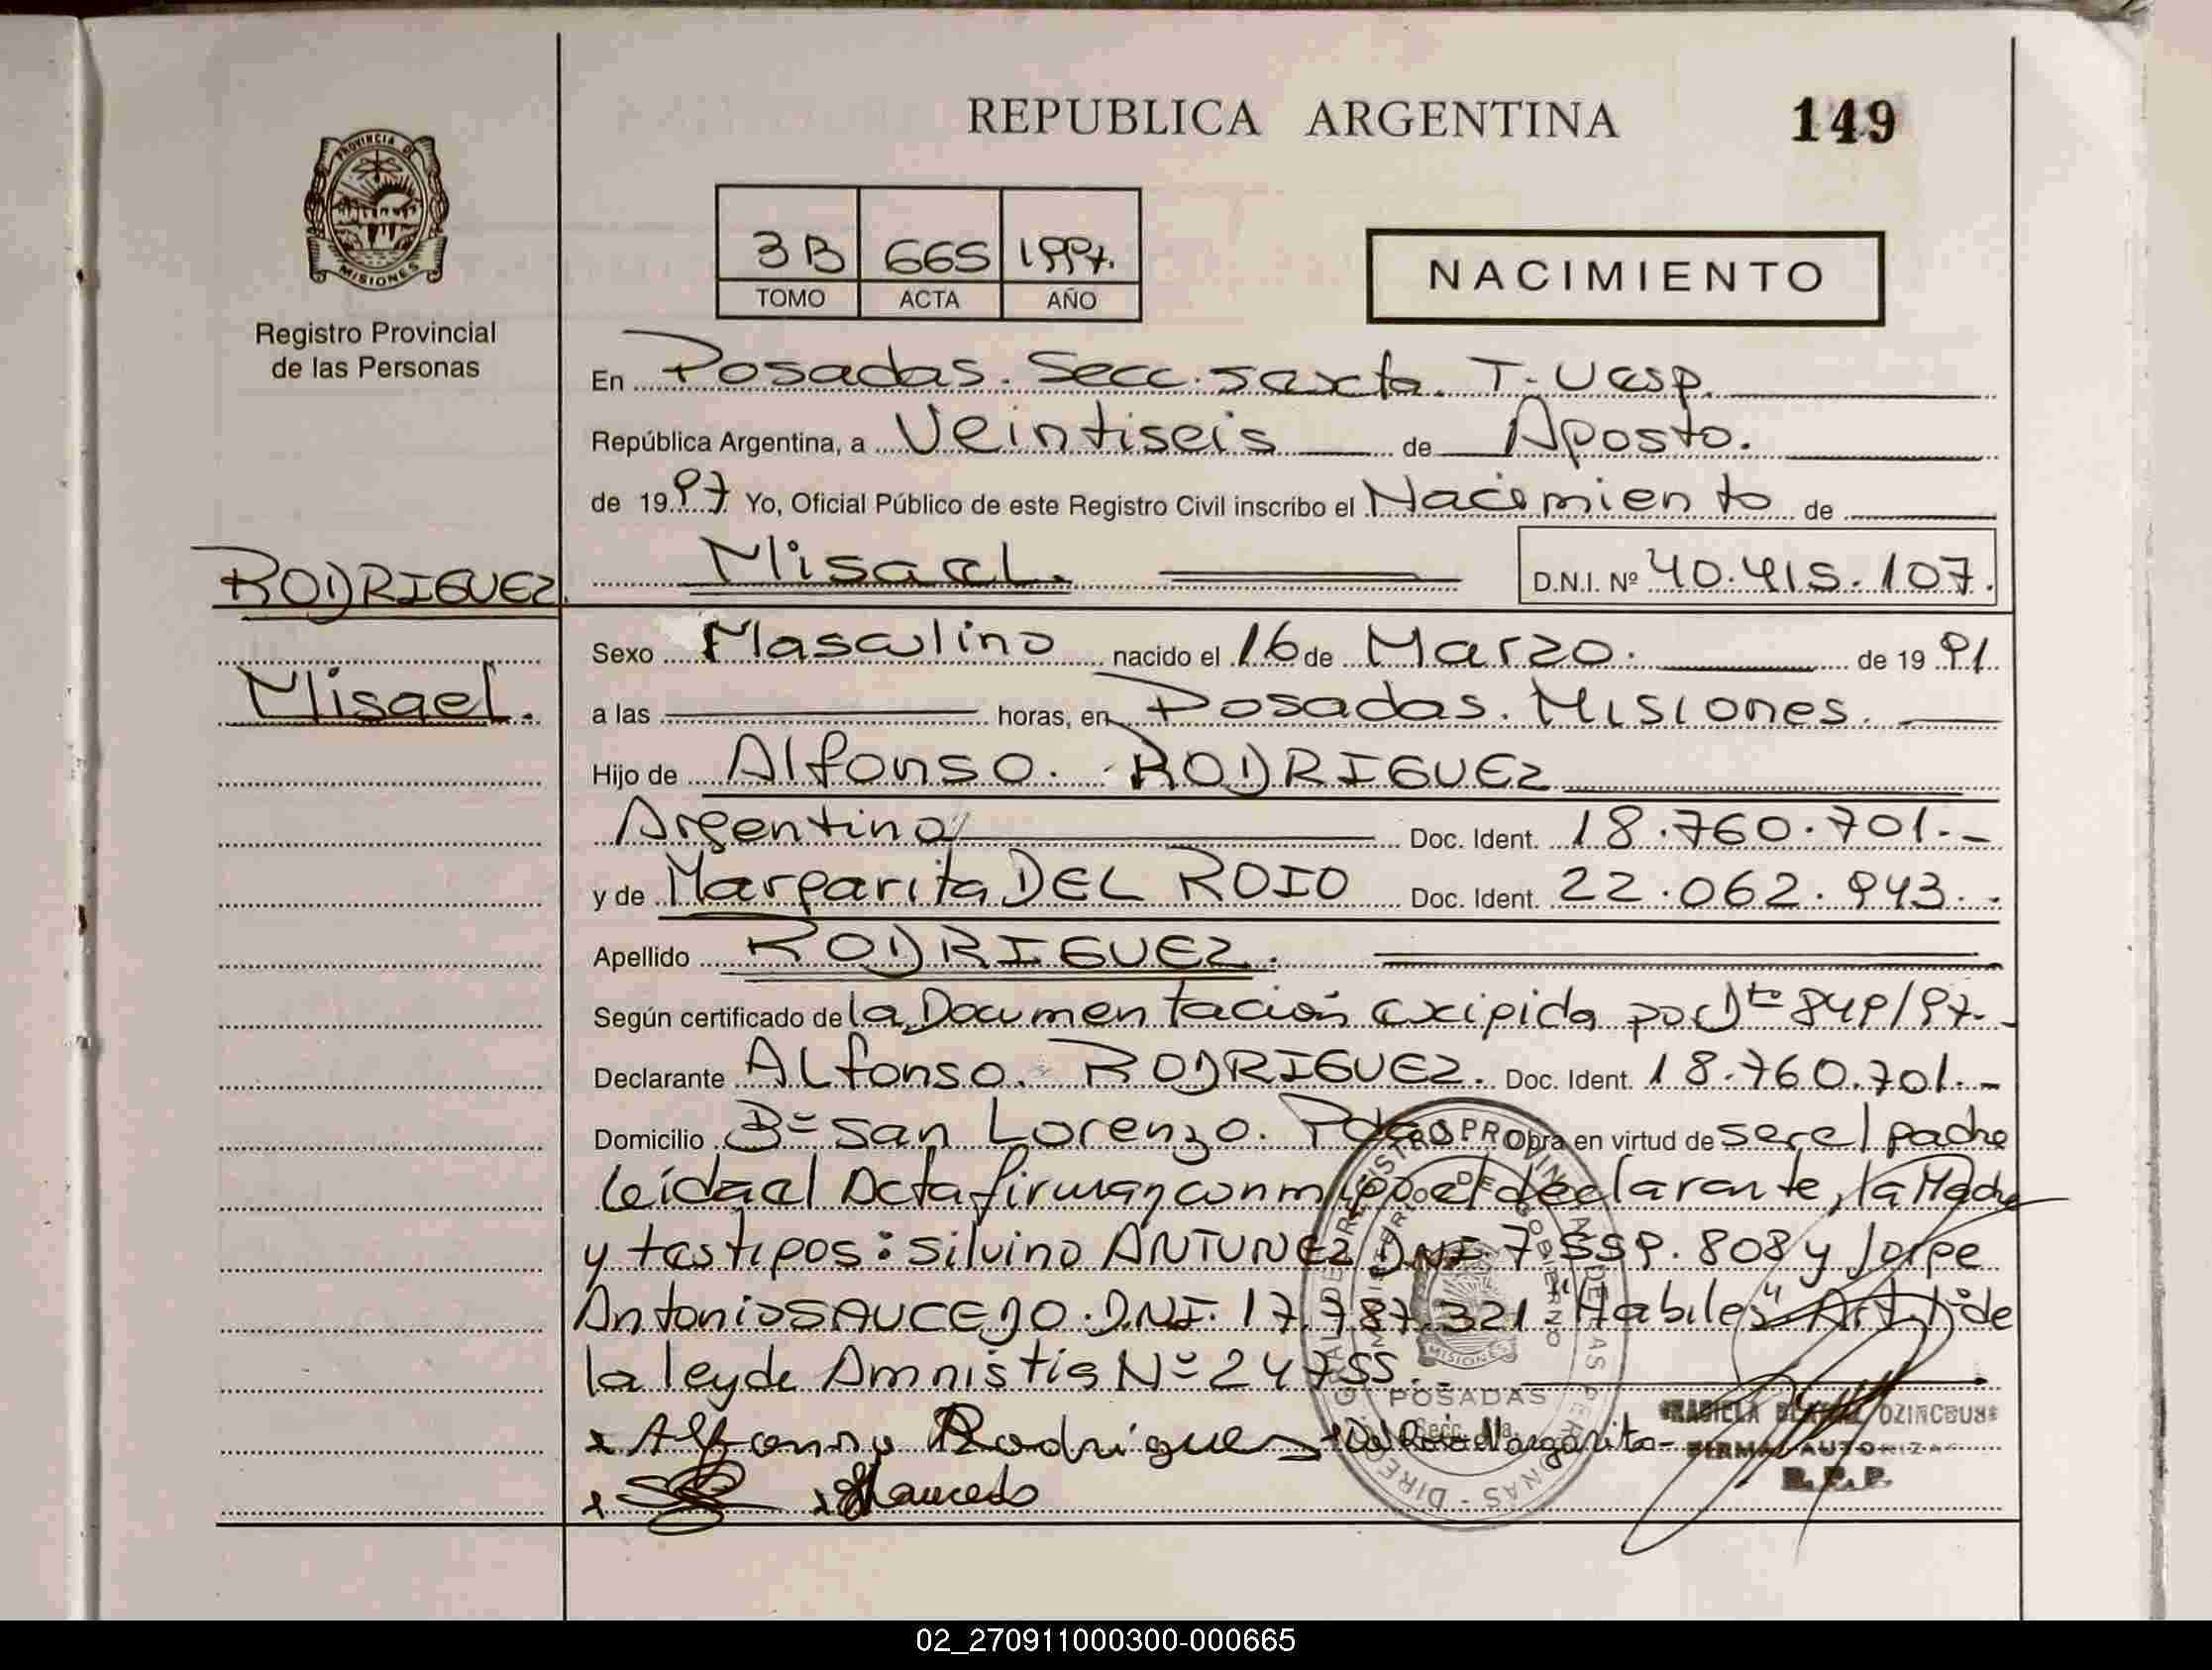 REPUBLICA ARGENTINA
149
PROVINCIA DE
MISIONES
Registro Provincial
de las Personas
3B 665 1997.
TOMO ACTA AÑO
NACIMIENTO
En Posadas. Secc. sexta. T.
República Argentina, a Veintiseis de Agosto.
de 1997 Yo, Oficial Público de este Registro Civil inscribo el Nacimiento de
Misael. D.N.I. Nº 40.415.107.
RODRIGUEZ.
Misael.
Sexo Masculino nacido el 16 de Marzo. de 1991.
a las horas, en Posadas. Misiones.
Hijo de Alfonso. RODRIGUEZ
Argentino Doc. Ident. 18.760.701.-
y de Margarita DEL ROIO Doc. Ident. 22.062.943.-
Apellido RODRIGUEZ.
Según certificado de la Documentación exigida por Dto 849/97.-
Declarante ALfonso. RODRIGUEZ. Doc. Ident. 18.760.701.-
Domicilio Bº San Lorenzo. Pdas Obra en virtud de ser el padre
Leida el Acta firman conmigo el declarante, la Madre
y testigos: Silvino ANTUNEZ DNI. 7.559.808 y Jorge
Antonio SAUCEDO. D.NI. 17.787.321 "Habiles" Art. 1º de
la ley de Amnistia Nº 24755.
x Alfonso Rodrigues x Del Roio Margarita
x x Saucedo
MISIONES
POSADAS
Secc. 6ta.
FIRMA AUTORIZA
R.P.P.
02_270911000300-000665